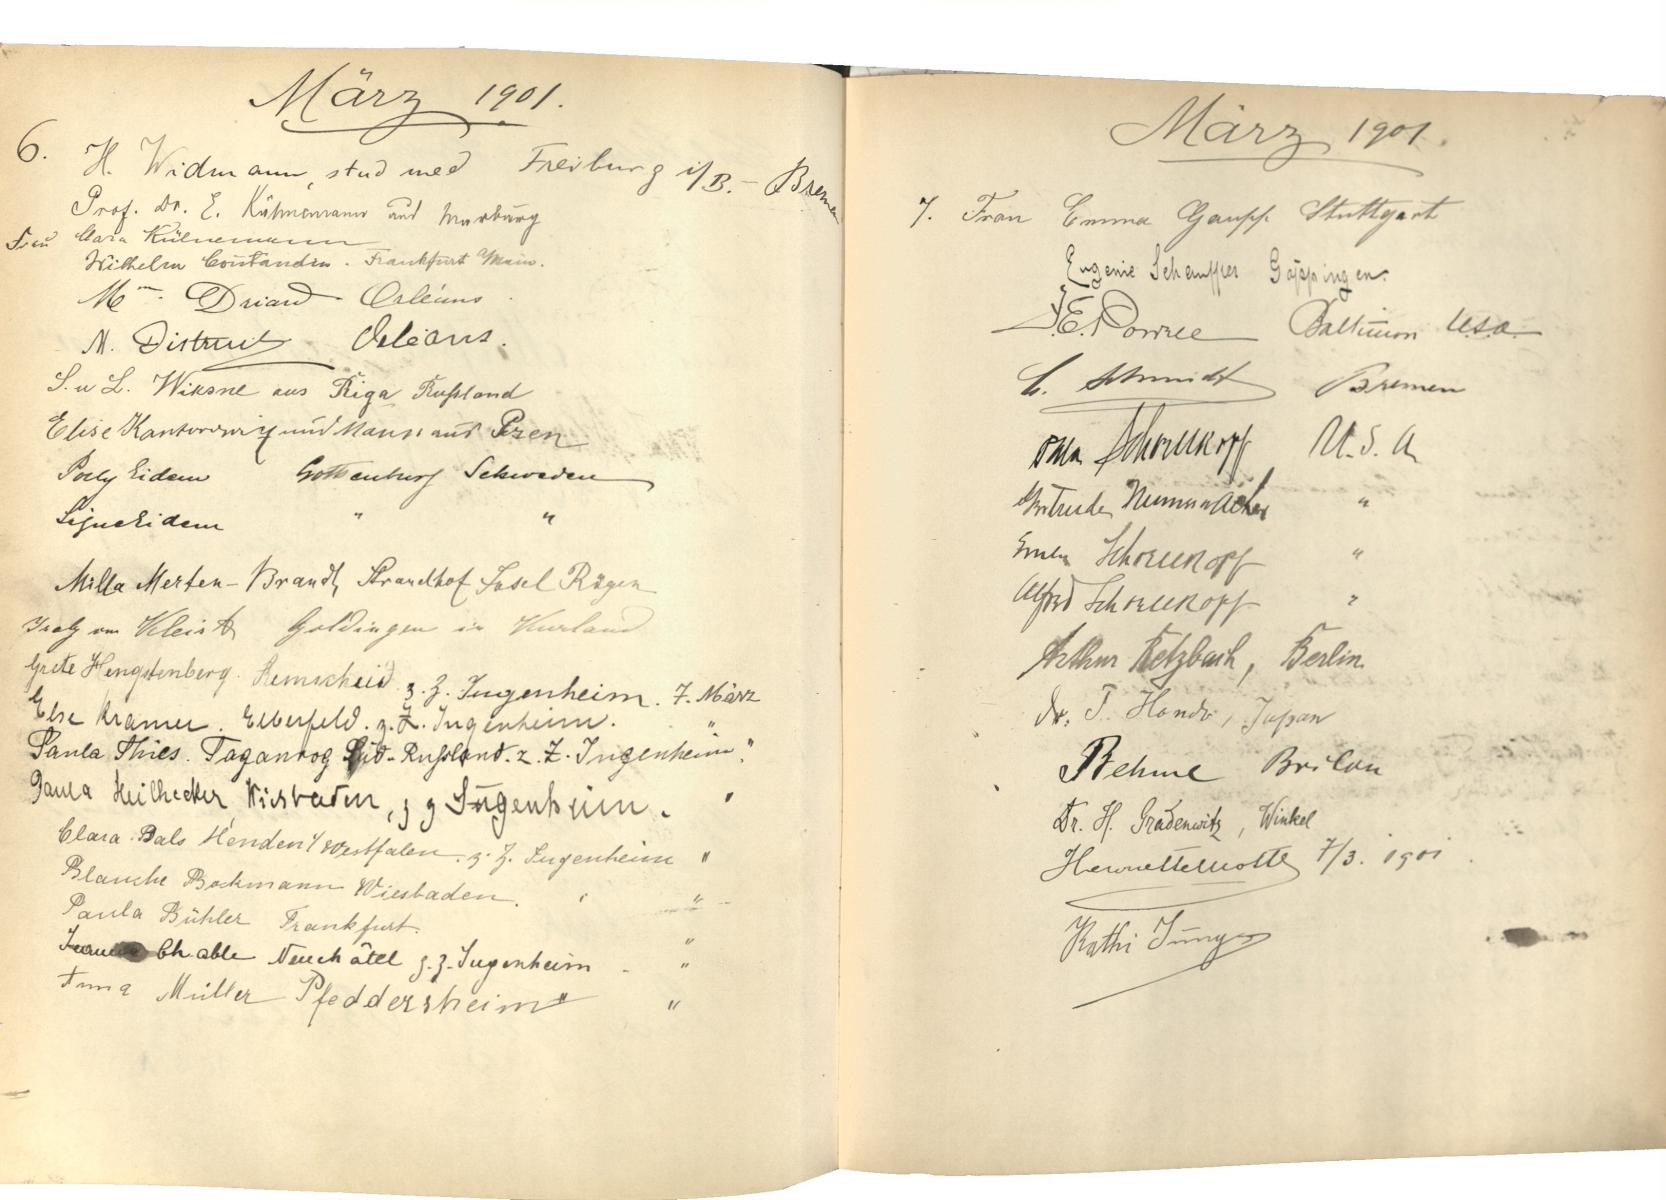 März 1901.
6. H. Widmann, stud med Freiburg i/B. - Bremen
Prof. Dr. E. Kühnemann aus Marburg
Frau Clara Kühnemann
Wilhelm Constandin. Frankfurt Main.
Mme. Driard Orléans
M. Orléans.
S. u L. Wiksne aus Riga Rußland
Elise Kantorowicz und Mann aus Posen
Polly Eidem Gottenburg Schweden
Signe Eidem " "
Milla Merten-Brandt, Strandhof Insel Rügen
von Kleist Goldingen in Kurland
Grete Hengstenberg. Remscheid z. Z. Jugenheim. 7. März
Else Kramer. Elberfeld. z. Z. Jugenheim. "
Paula Thies. Taganrog Süd-Rußland. z. Z. Jugenheim "
Paula Heilhecker Wiesbaden, z Z Jugenheim. "
Clara Bals Menden i/Westfalen. z. Z. Jugenheim "
Blanche Bockmann Wiesbaden. " "
Paula Bühler Frankfurt. "
Chable Neuchâtel z. Z. Jugenheim "
Anna Müller Pfeddersheim "
März 1901.
7. Frau Emma Gaupp Stuttgart
Eugenie Schauffler Göppingen.
Baltimore U.S.A.
C. Schmidt Bremen
Schoellkopf U. S. A.
Gertrude Nunnemacher "
Schoellkopf "
Alfred Schoellkopf "
Arthur Retzbach, Berlin
Dr. T. Honda, Japan
Behme Brilon
Dr. H. Gradenwitz, Winkel
Henriette Motte 7/3. 1901
Käthi Junge